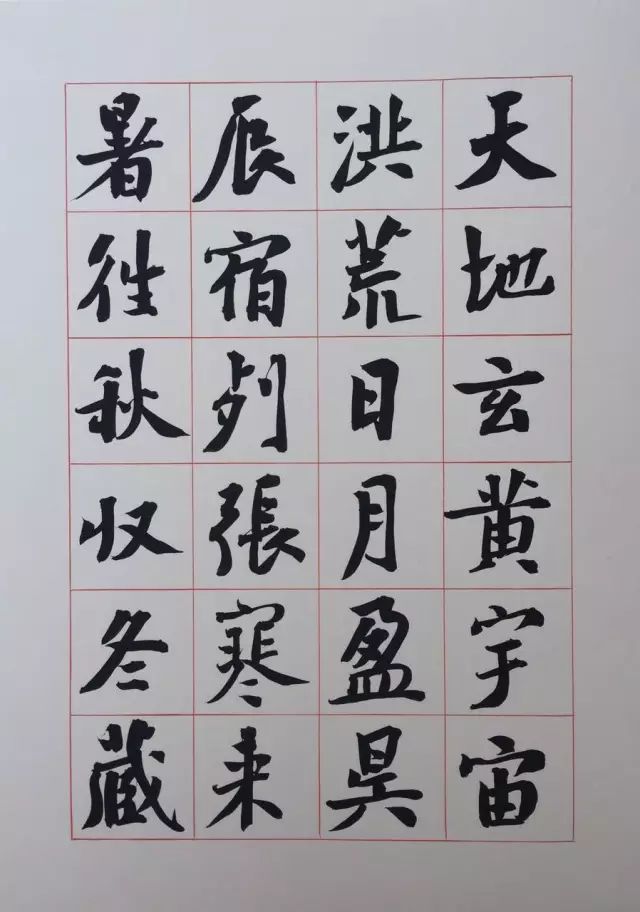 天地玄黄宇宙
洪荒日月盈昃
辰宿列張寒来
暑徃秋収冬藏